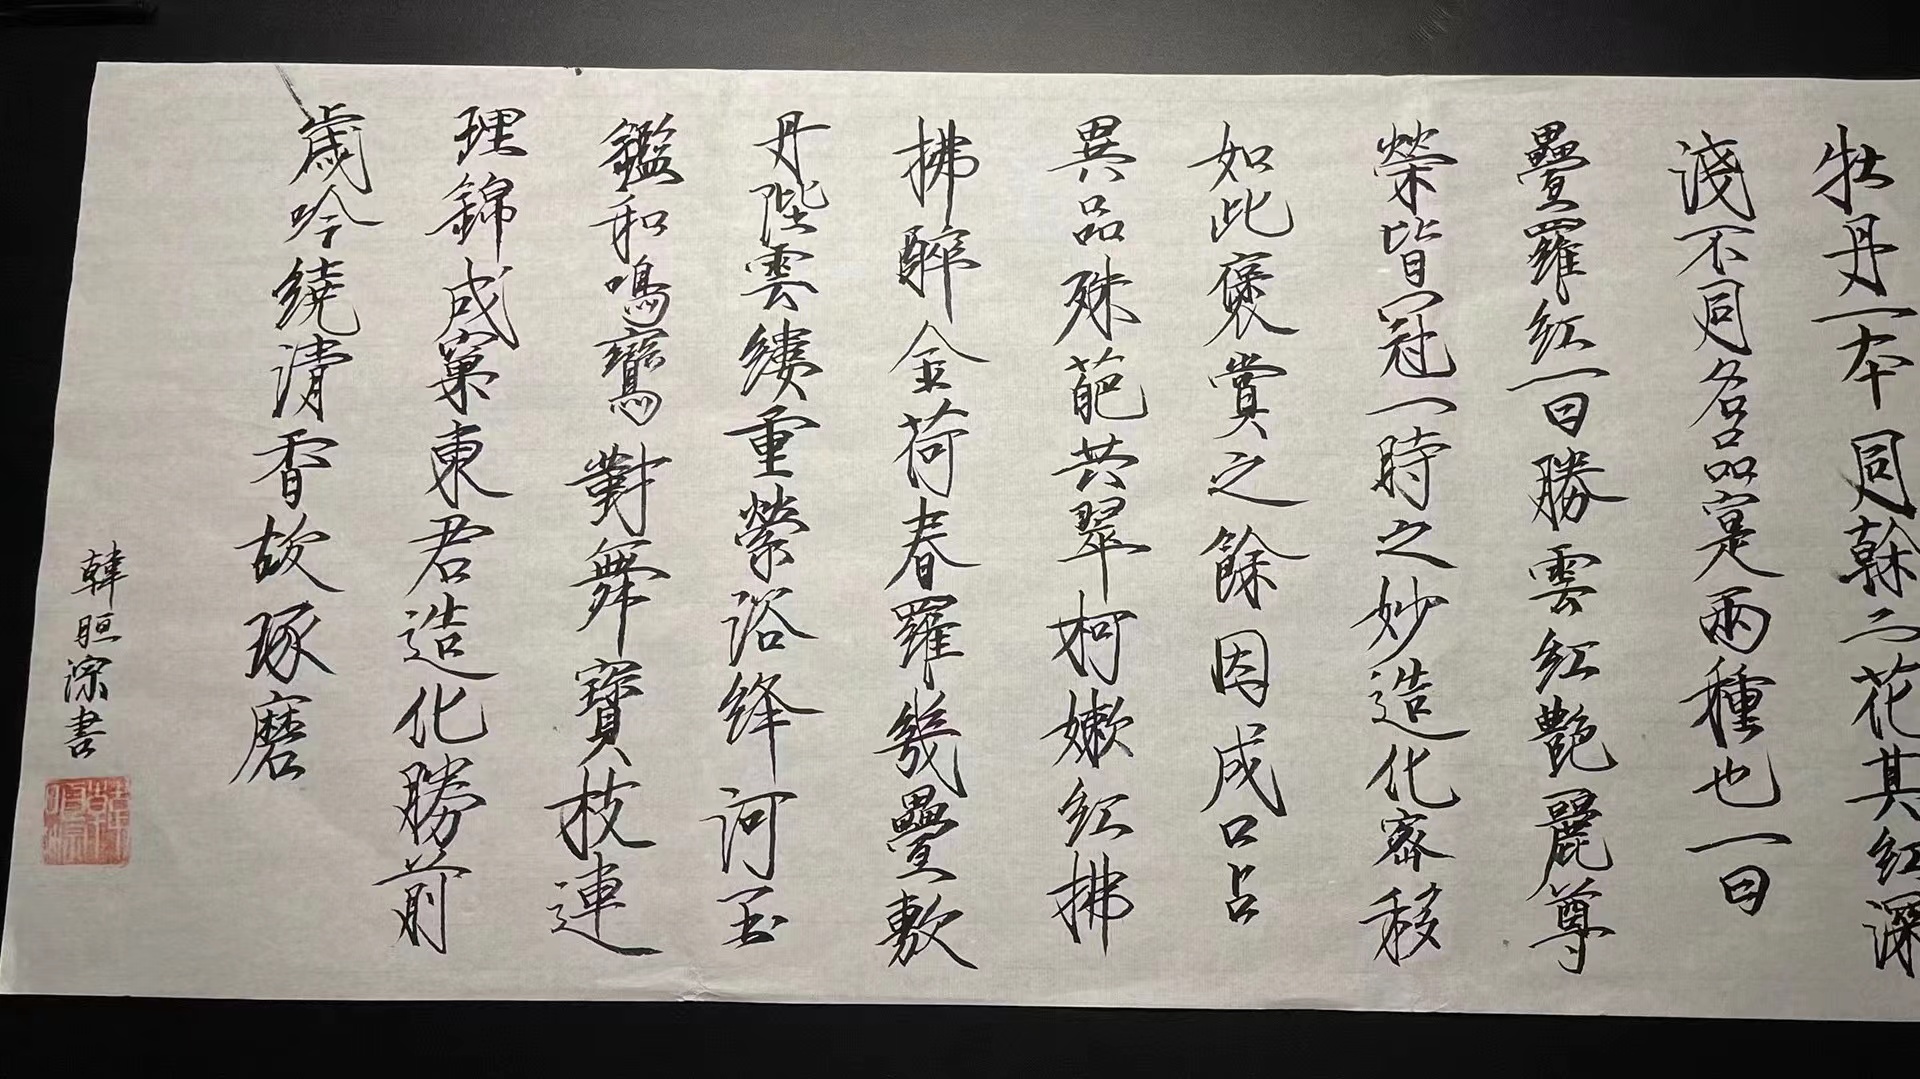 牡丹一本同榦二花其红深
淺不同名品寔兩種也一曰
疊羅红一曰勝雲红艶麗尊
榮皆冠一時之妙造化密移
如此褒賞之餘因成口占
異品殊葩共翠柯嫩红拂
拂醉金荷春羅幾疊敷
丹陛雲縷重縈浴绛河玉
鑑和鳴鸞對舞寶枝連
理錦成窠東君造化勝前
歲吟繞清香故琢磨
韓
書